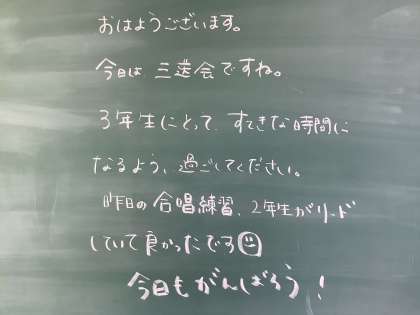 おはようございます。
今日は 三送会ですね。
3年生にとって、すてきな時間に
なるよう、過ごしてください。
昨日の 合唱練習、2年生がリード
していて良かったです☺
今日もがんばろう!